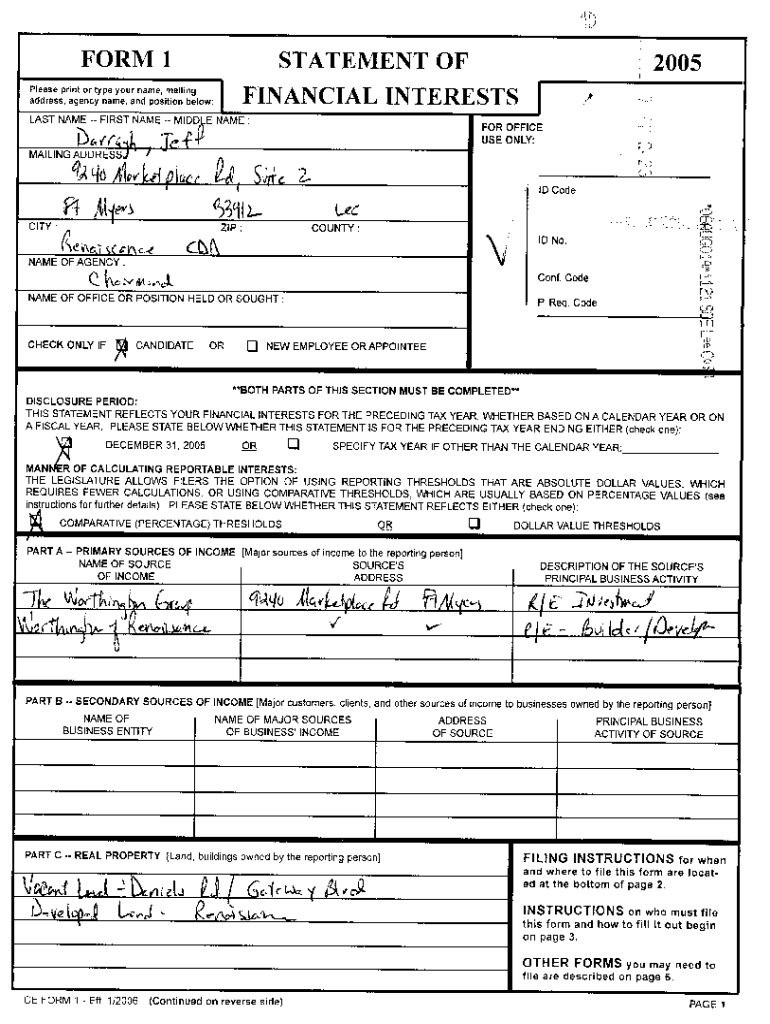 FORM 1 STATEMENT OF 2005
Please print or type your name, mailing
address, agency name, and position below:
FINANCIAL INTERESTS
LAST NAME -- FIRST NAME -- MIDDLE NAME :
Darragh, Jeff
MAILING ADDRESS:
9240 Marketplace Rd, Suite 2
Ft Myers 33912 Lee
CITY : ZIP : COUNTY :
Renaissance CDD
NAME OF AGENCY :
Chairman
NAME OF OFFICE OR POSITION HELD OR SOUGHT :
CHECK ONLY IF CANDIDATE OR NEW EMPLOYEE OR APPOINTEE
FOR OFFICE
USE ONLY:
ID Code
ID No.
Conf. Code
P. Req. Code
**BOTH PARTS OF THIS SECTION MUST BE COMPLETED**
DISCLOSURE PERIOD:
THIS STATEMENT REFLECTS YOUR FINANCIAL INTERESTS FOR THE PRECEDING TAX YEAR, WHETHER BASED ON A CALENDAR YEAR OR ON
A FISCAL YEAR. PLEASE STATE BELOW WHETHER THIS STATEMENT IS FOR THE PRECEDING TAX YEAR ENDING EITHER (check one):
DECEMBER 31, 2005 OR SPECIFY TAX YEAR IF OTHER THAN THE CALENDAR YEAR:
MANNER OF CALCULATING REPORTABLE INTERESTS:
THE LEGISLATURE ALLOWS FILERS THE OPTION OF USING REPORTING THRESHOLDS THAT ARE ABSOLUTE DOLLAR VALUES, WHICH
REQUIRES FEWER CALCULATIONS, OR USING COMPARATIVE THRESHOLDS, WHICH ARE USUALLY BASED ON PERCENTAGE VALUES (see
instructions for further details). PLEASE STATE BELOW WHETHER THIS STATEMENT REFLECTS EITHER (check one):
COMPARATIVE (PERCENTAGE) THRESHOLDS OR DOLLAR VALUE THRESHOLDS
PART A -- PRIMARY SOURCES OF INCOME [Major sources of income to the reporting person]
NAME OF SOURCE SOURCE'S DESCRIPTION OF THE SOURCE'S
OF INCOME ADDRESS PRINCIPAL BUSINESS ACTIVITY
The Worthington Group 9240 Marketplace Rd Ft Myers R/E Investment
Worthington of Renaissance R/E - Builder/Develop
PART B -- SECONDARY SOURCES OF INCOME [Major customers, clients, and other sources of income to businesses owned by the reporting person]
NAME OF NAME OF MAJOR SOURCES ADDRESS PRINCIPAL BUSINESS
BUSINESS ENTITY OF BUSINESS' INCOME OF SOURCE ACTIVITY OF SOURCE
PART C -- REAL PROPERTY [Land, buildings owned by the reporting person]
Vacant Land - Daniels Rd / Gateway Blvd
Developed Land - Renaissance
FILING INSTRUCTIONS for when
and where to file this form are locat-
ed at the bottom of page 2.
INSTRUCTIONS on who must file
this form and how to fill it out begin
on page 3.
OTHER FORMS you may need to
file are described on page 6.
CE FORM 1 - Eff. 1/2006 (Continued on reverse side) PAGE 1